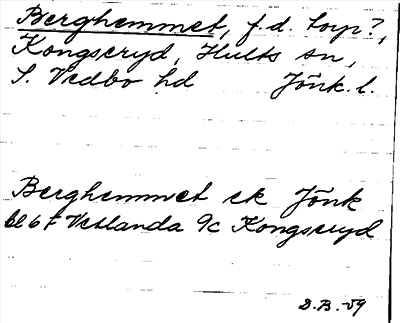 Berghemmet, f.d. torp?,
Kongseryd, Hults sn,
S. Vedbo hd Jönk. l.
Berghemmet ek Jönk
bl 6 f Vetlanda 9c Kongseryd
D.B. -59